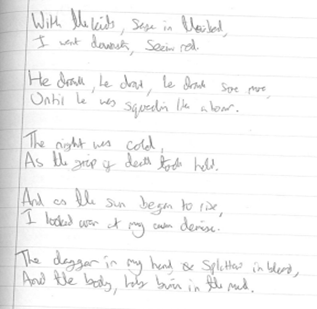 With the kids, safe in their bed,
I went downstairs, seein red.
He drank, he drank, he drank some more,
Until he was squealin like a boar.
The night was cold,
As the grip of death took hold.
And as the sun began to rise,
I looked over at my own demise.
The dagger in my hand & splatter in blood,
And the body, half buried in the mud.